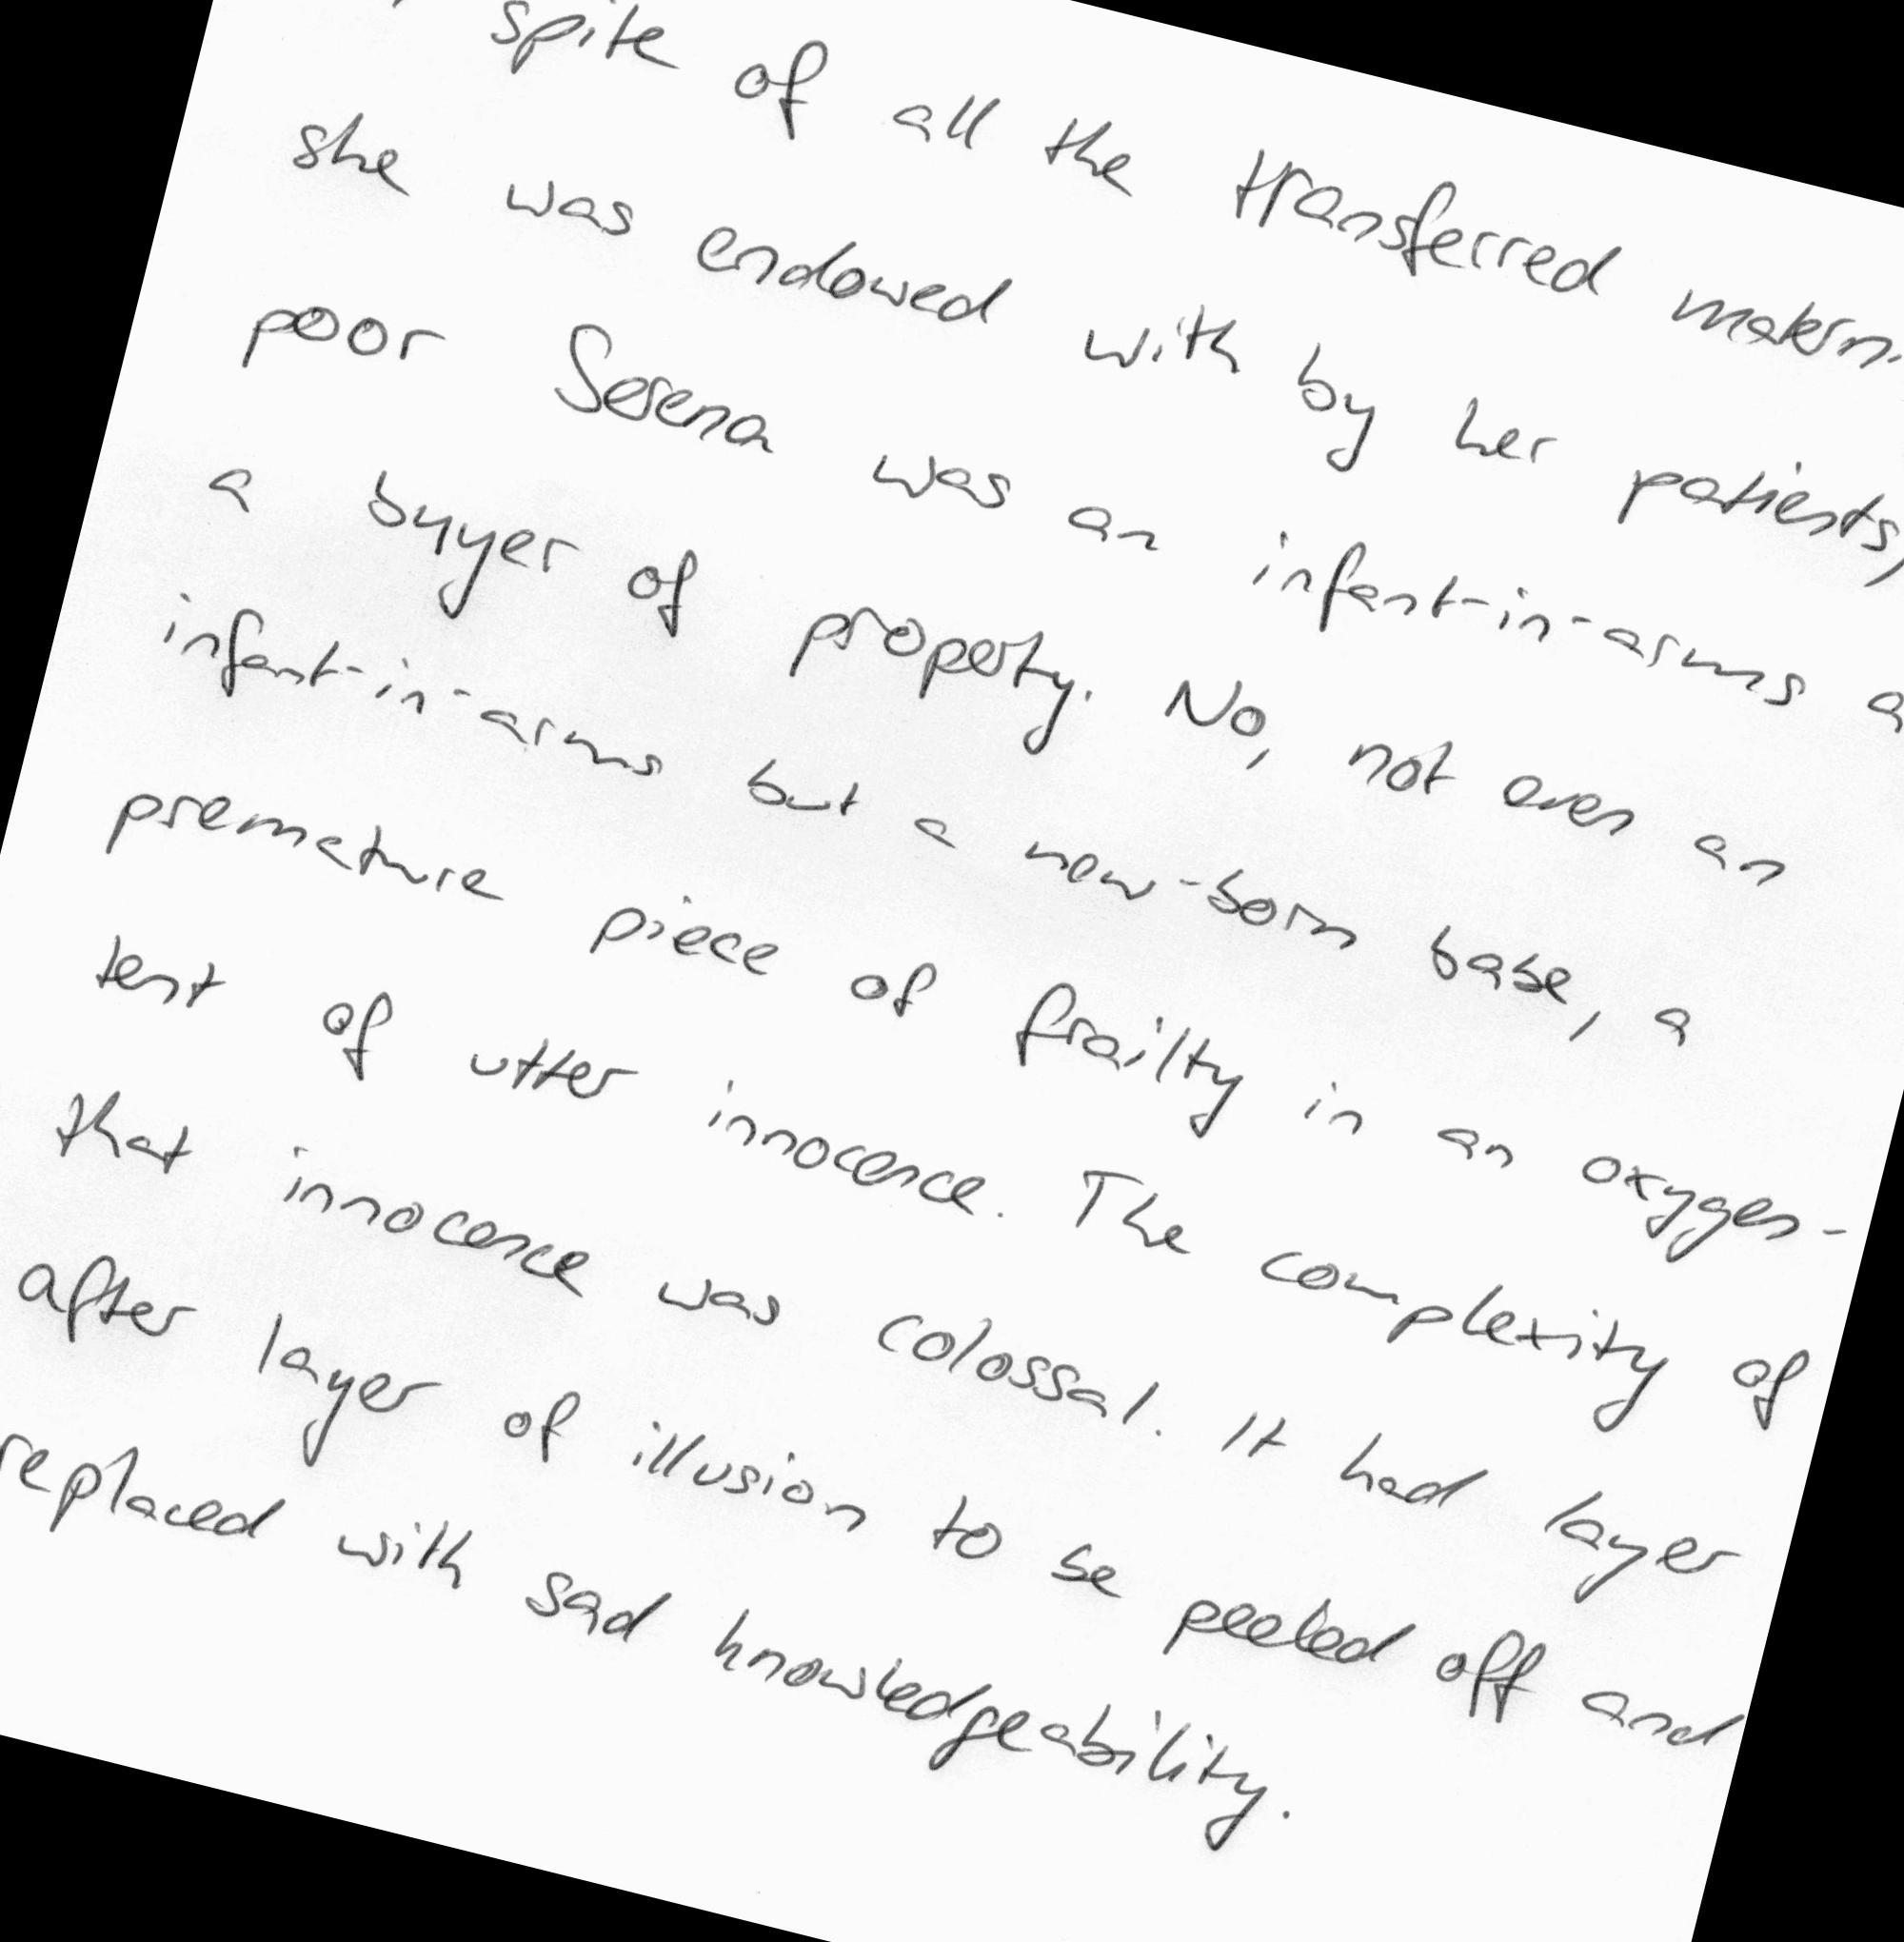 spite of all the transferred
she was endowed with by her patients,
poor Serena was an infant-in-arms a
a buyer of property. No, not even an
infant-in-arms but a new-born babe, a
premature piece of frailty in an oxygen-
tent of utter innocence. The complexity of
that innocence was colossal. It had layer
after layer of illusion to be peeled off and
replaced with sad knowledgeability.